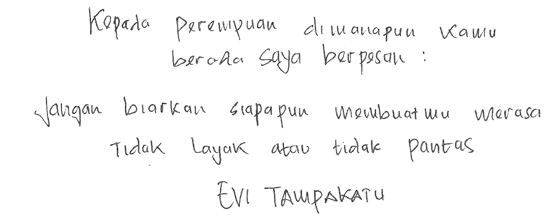 Kepada perempuan dimanapun kamu
berada saya berpesan :
Jangan biarkan siapapun membuatmu merasa
Tidak layak atau tidak pantas
EVI TAMPAKATU